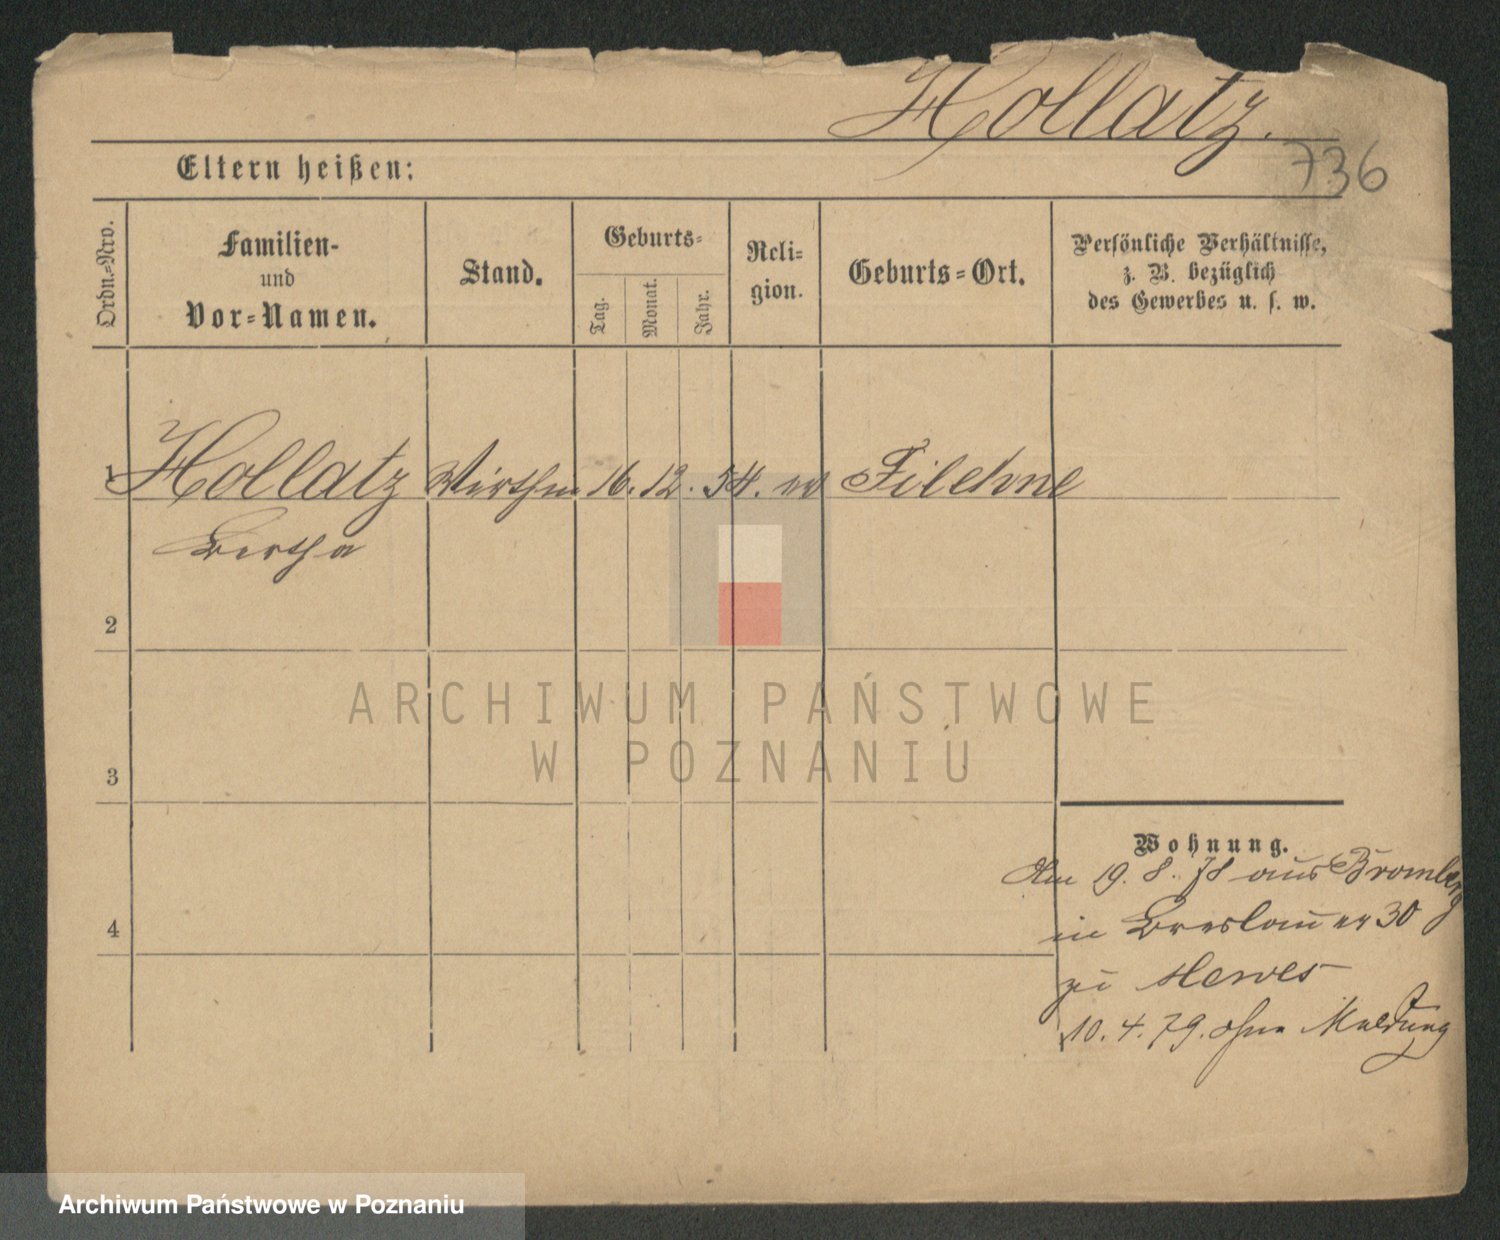 Hollatz.
736
Eltern heißen:
Ordn.=Nro.
Familien-
und
Vor=Namen.
Stand.
Geburts=
Tag.
Monat.
Jahr.
Reli=
gion.
Geburts=Ort.
Persönliche Verhältnisse,
z. B. bezüglich
des Gewerbes u. s. w.
1 Hollatz Wirthin 16. 12. 54. ev Filehne
Bertha
2
3
4
Wohnung.
Am 19. 8. 78 aus Bromberg
in Breslauer 30
zu
10. 4. 79. ohne Meldung
ARCHIWUM PAŃSTWOWE
W POZNANIU
Archiwum Państwowe w Poznaniu